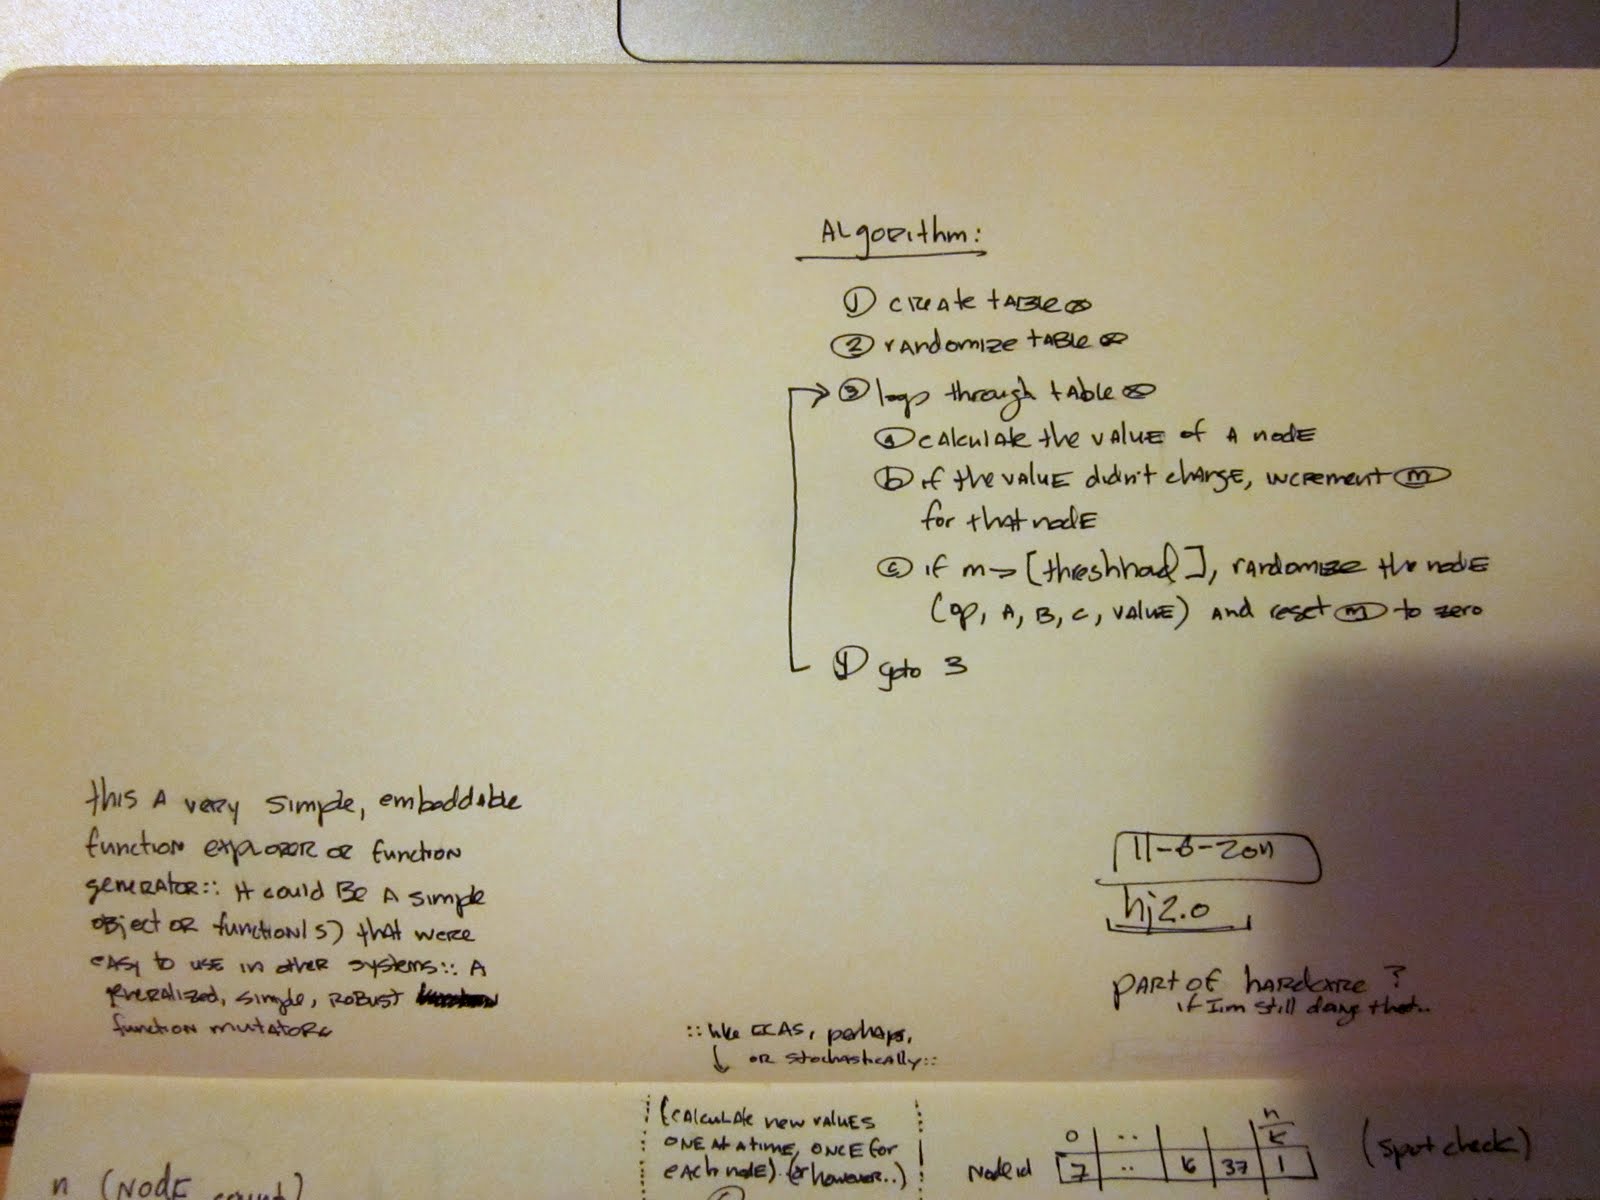 Algorithm:
① create table
② randomize table
③ loop through table
ⓐ calculate the value of a node
ⓑ if the value didn't change, increment ⓜ
for that node
ⓒ if m => [threshhod], randomize the node
(op, A, B, C, value) and reset ⓜ to zero
④ goto 3
this a very simple, embeddable
function explorer or function
generator:: it could be a simple
object or function(s) that were
easy to use in other systems:: A
generalized, simple, robust
function mutator
11-6-2011
hj2.0
part of hardcore?
if I'm still doing that..
:: like CCAS, perhaps,
or stochastically::
(calculate new values
one at a time, once for
each node). (or however..)
n (node count)
n
0 .. k
node id 7 .. 16 37 1
(spot check)